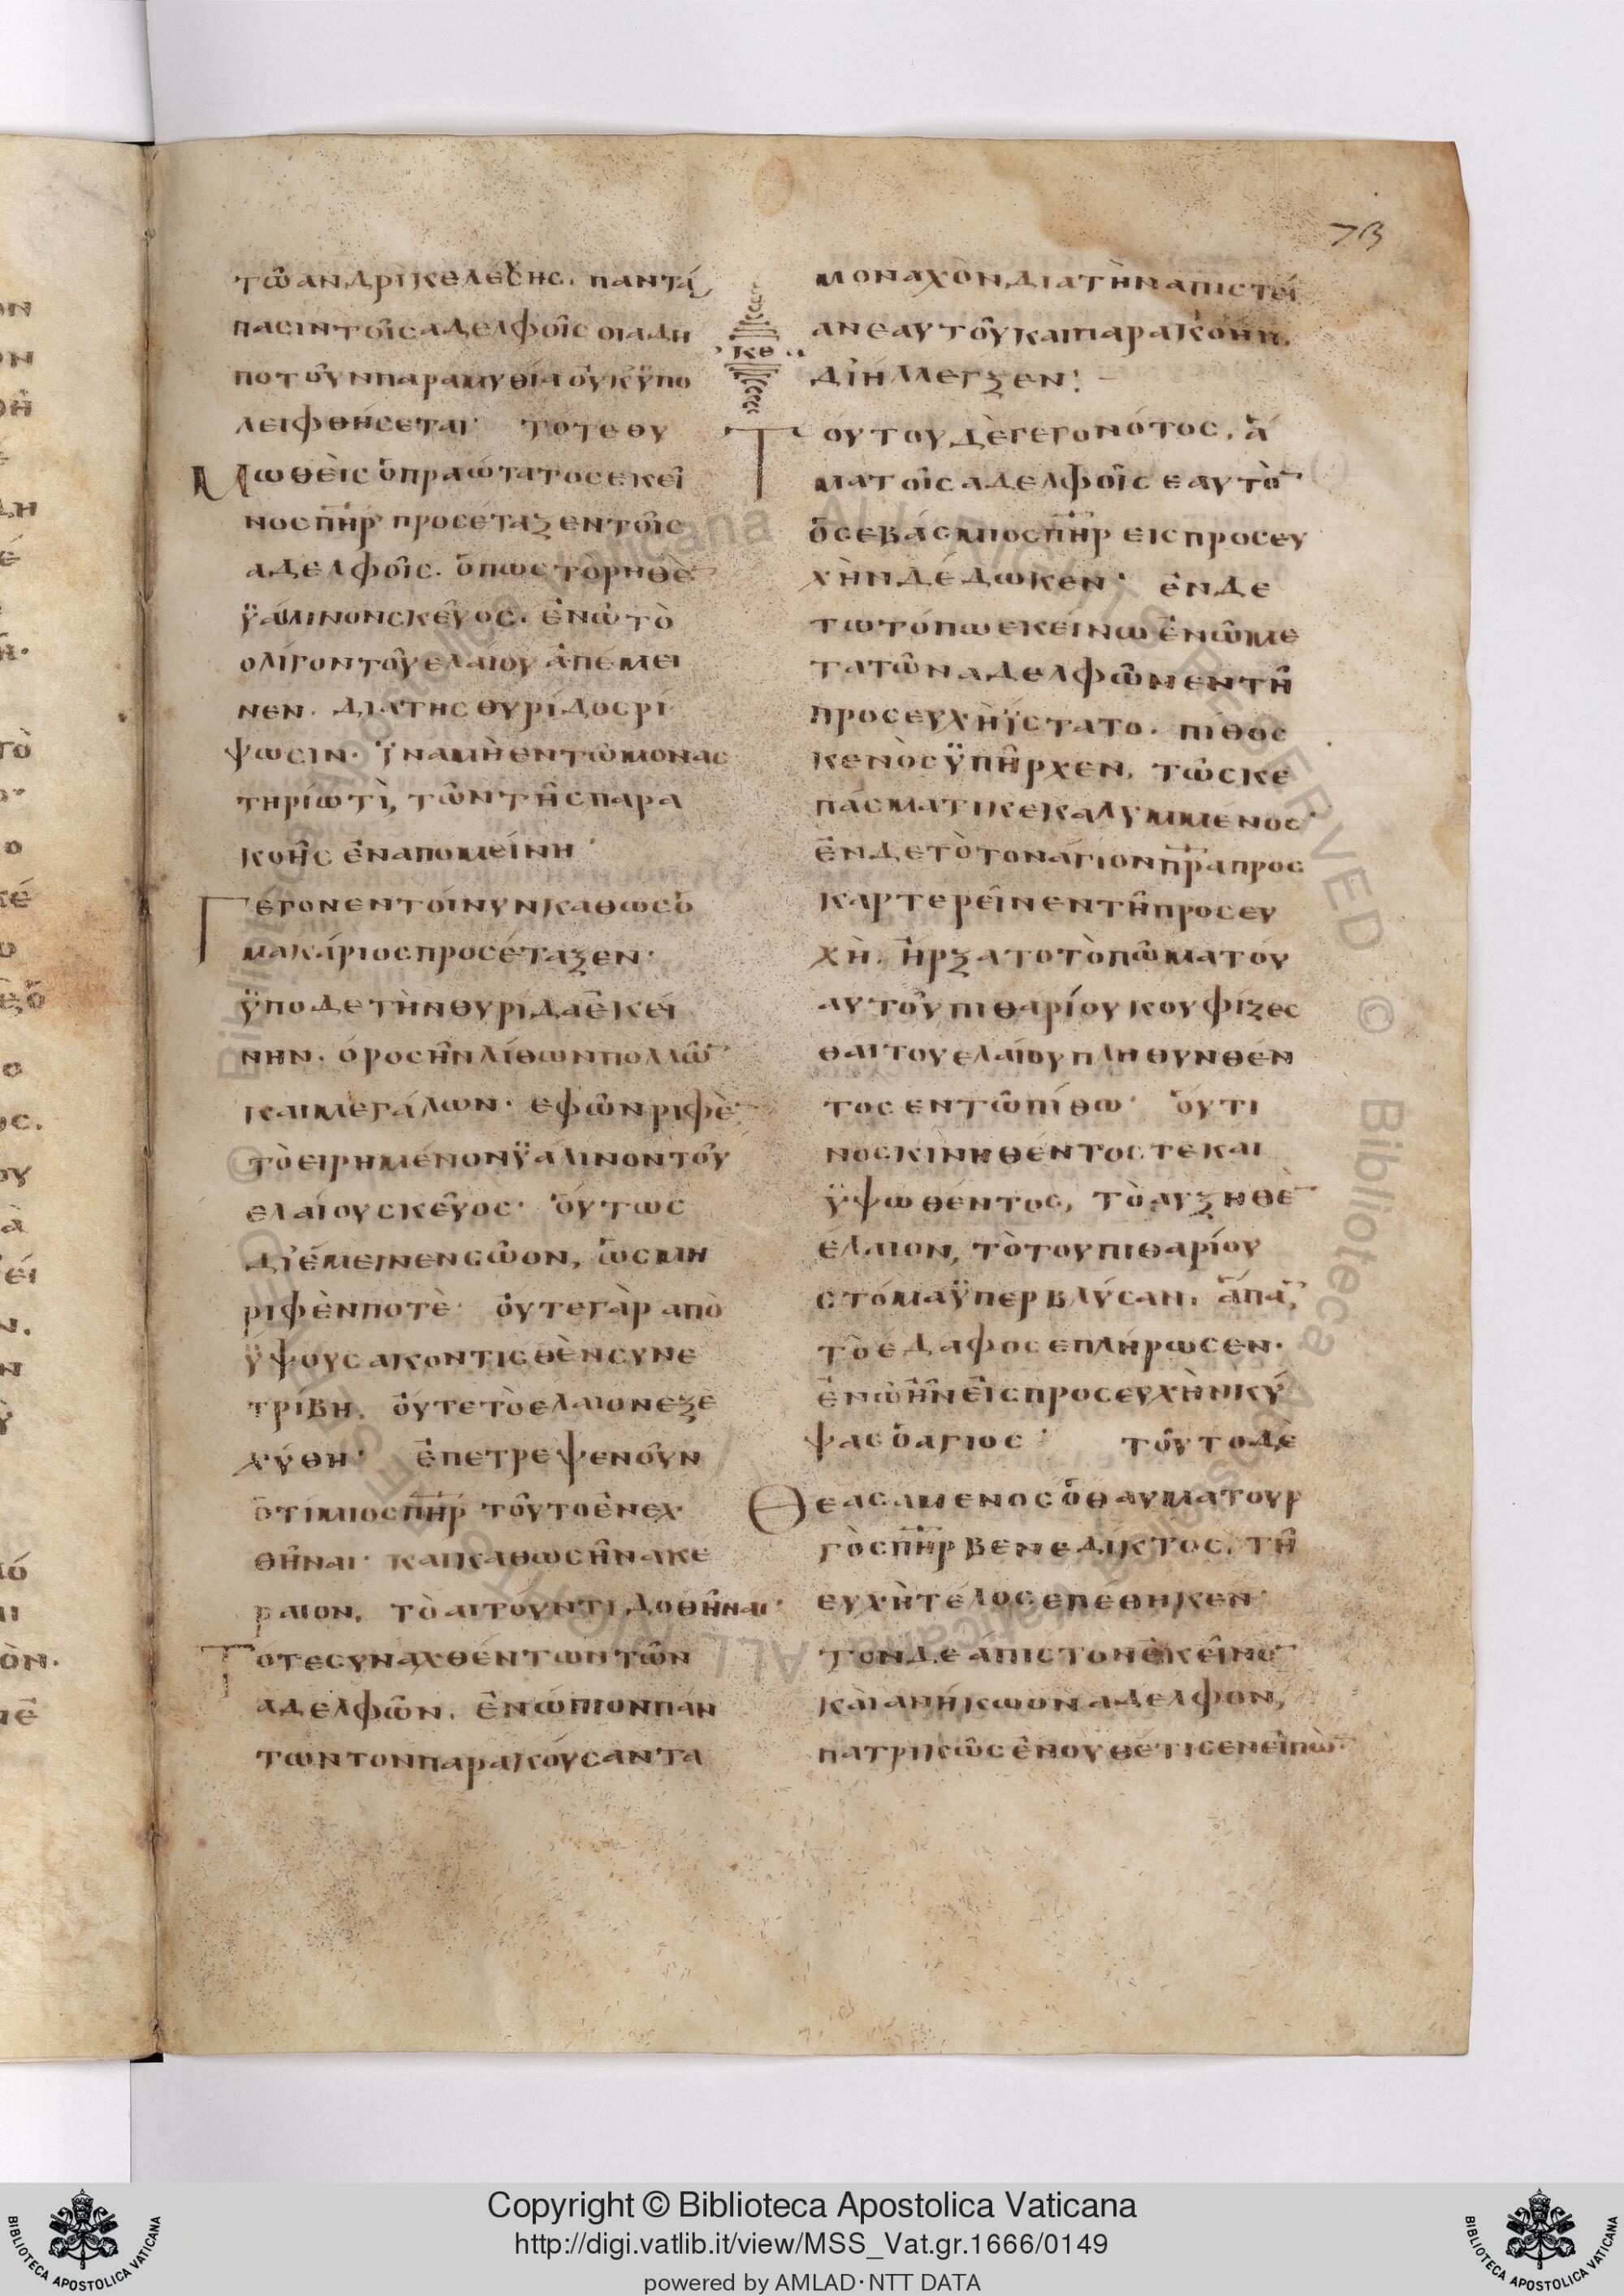 73
τῶ ἀνδρὶ κελεύσης, παντά
πασιν τοῖς ἀδελφοῖς οἱαδη
ποτοῦν παραμυθία οὐκ ϋπο
λειφθήσεται· τότε θυ
μωθεὶς ὁ πραώτατος εκεῖ
νος πηρ προσέταξεν τοῖς
αδελφοῖς. ὅπως τὸ ρηθὲ
ϋάλινον σκεῦος. ἐν ὧ τὸ
ολίγον τοῦ ελαίου ἀπέμει
νεν. διὰ της θυρίδος ρί
ψωσιν. ϊνα μὴ εν τῶ μονας
τηρίω τὶ, τῶν τῆς παρα
κοῆς ἐναπομείνη·
Γέγονεν τοίνυν καθως ὁ
μακάριος προσέταξεν·
ϋπο δε τὴν θυρίδα ἐκεί
νην. όρος ῆν λίθων πολλῶ
και μεγάλων. εφ ὧν ριφὲ
τὸ ειρημένον ϋάλινον τοῦ
ελαίου σκεῦος· οὕτως
διέμεινεν σῶον, ὡς μη
ριφὲν ποτὲ· οὔτε γὰρ απὸ
ϋψους ακοντισθὲν συνε
τρίβη. οὔτε τὸ ελαιον εξε
χύθη· ἐπετρεψεν οῦν
ὁ τίμιος πηρ τοῦτο ἐνεχ
θῆναι· και καθως ῆν ακε
ραιον, τὸ αιτουντι δοθῆναι·
Τότε συναχθέντων τῶν
ἀδελφῶν. ἐνώπιον παν
των τον παρακούσαντα
κθ
μοναχὸν, δια τὴν απιστεί
αν εαυτοῦ και παρακοὴν.
διήλλεγξεν:
Τούτου δὲ γεγονότος, ἅ
μα τοῖς αδελφοῖς εαυτὸ
ὁ σεβάσμιος πηρ εις προσευ
χὴν δέδωκεν· ἐν δε
τω τόπω εκείνω ἐν ὧ με
τα τῶν αδελφῶν εν τῆ
προσευχὴ ΐστατο. πίθος
κενὸς ϋπῆρχεν, τῶ σκε
πάσματι κεκαλυμμένος·
ἐν δε τὸ τον άγιον πρα προς
καρτερεῖν εν τῆ προσευ
χὴ. ἤρξατο τὸ πῶμα του
αυτοῦ πιθαρίου κουφίζεσ
θαι του ελαίου πληθυνθέν
τος εν τῶ πίθω· οὗτι
νος κινηθέντος τε και
ϋψωθέντος, τὸ αυξηθὲ
ελαιον, τὸ του πιθαρίου
στόμα ϋπερβλύσαν, ἅπα
τὸ εδαφος επλήρωσεν.
ἐν ὧ ῆν εἰς προσευχὴν κύ
ψας ὁ αγιος· τοῦτο δὲ
Θεασαμενος ὁ θαυματουρ
γὸς πηρ βενεδικτος. τῆ
ευχὴ τέλος επέθηκεν·
τον δε ἄπιστον ἐκεῖνο
καὶ ανήκωον αδελφον,
πατρικῶς ἐνουθέτισεν εἰπὼ·
Copyright © Biblioteca Apostolica Vaticana
http://digi.vatlib.it/view/MSS_Vat.gr.1666/0149
powered by AMLAD·NTT DATA